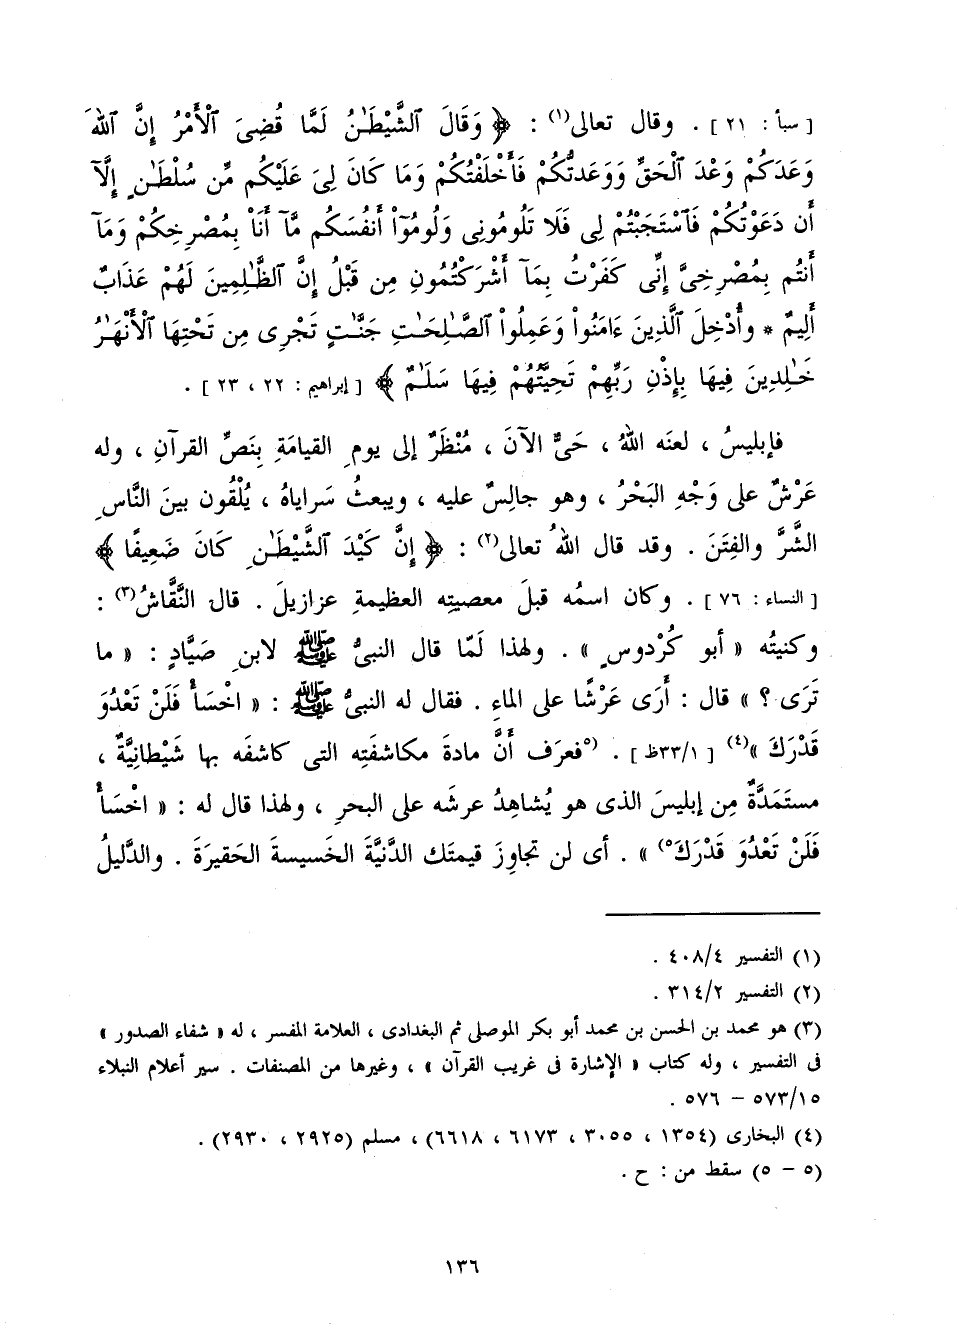 [ سبأ : ٢١ ] . وقال تعالى(١) : ﴿ وَقَالَ ٱلشَّيْطَـٰنُ لَمَّا قُضِىَ ٱلْأَمْرُ إِنَّ ٱللَّهَ
وَعَدَكُمْ وَعْدَ ٱلْحَقِّ وَوَعَدتُّكُمْ فَأَخْلَفْتُكُمْ وَمَا كَانَ لِىَ عَلَيْكُم مِّن سُلْطَـٰنٍ إِلَّآ
أَن دَعَوْتُكُمْ فَٱسْتَجَبْتُمْ لِى فَلَا تَلُومُونِى وَلُومُوٓا۟ أَنفُسَكُم مَّآ أَنَا۠ بِمُصْرِخِكُمْ وَمَآ
أَنتُم بِمُصْرِخِىَّ إِنِّى كَفَرْتُ بِمَآ أَشْرَكْتُمُونِ مِن قَبْلُ إِنَّ ٱلظَّـٰلِمِينَ لَهُمْ عَذَابٌ
أَلِيمٌ * وَأُدْخِلَ ٱلَّذِينَ ءَامَنُوا۟ وَعَمِلُوا۟ ٱلصَّـٰلِحَـٰتِ جَنَّـٰتٍ تَجْرِى مِن تَحْتِهَا ٱلْأَنْهَـٰرُ
خَـٰلِدِينَ فِيهَا بِإِذْنِ رَبِّهِمْ تَحِيَّتُهُمْ فِيهَا سَلَـٰمٌ ﴾ [ إبراهيم : ٢٢ ، ٢٣ ] .
فإبليسُ ، لعنَه اللهُ ، حَىٌّ الآنَ ، مُنْظَرٌ إلى يومِ القيامَةِ بِنَصِّ القرآنِ ، وله
عَرْشٌ على وَجْهِ البَحْرُ ، وهو جالِسٌ عليه ، ويبعثُ سَراياهُ ، يُلْقُون بينَ النَّاسِ
الشَّرَّ والفِتَنَ . وقد قال اللهُ تعالى(٢) : ﴿ إِنَّ كَيْدَ ٱلشَّيْطَـٰنِ كَانَ ضَعِيفًا ﴾
[ النساء : ٧٦ ] . وكان اسمُه قبلَ معصيتِه العظيمةِ عزازيلَ . قال النَّقَّاشُ(٣) :
وكنيتُه « أبو كُرْدوسٍ » . ولهذا لَمّا قال النبىُّ ﷺ لابنِ صَيَّادٍ : « ما
تَرَى ؟ » قال : أَرَى عَرْشًا على الماءِ . فقال له النبىُّ ﷺ : « اخْسَأْ فَلَنْ تَعْدُوَ
قَدْرَكَ »(٤) [ ٣٣/١ظ ] . (٥فعرَف أَنَّ مادةَ مكاشفَتِه التى كاشفَه بها شَيْطانِيَّةٌ ،
مستمَدَّةٌ مِن إبليسَ الذى هو يُشاهِدُ عرشَه على البحرِ ، ولهذا قال له : « اخْسَأْ
فَلَنْ تَعْدُوَ قَدْرَكَ٥) » . أى لن تجاوِزَ قيمتَك الدَّنِيَّةَ الخَسيسةَ الحَقيرَةَ . والدَّليلُ
(١) التفسير ٤٠٨/٤ .
(٢) التفسير ٣١٤/٢ .
(٣) هو محمد بن الحسن بن محمد أبو بكر الموصلى ثم البغدادى ، العلامة المفسر ، له « شفاء الصدور »
فى التفسير ، وله كتاب « الإشارة فى غريب القرآن » ، وغيرها من المصنفات . سير أعلام النبلاء
٥٧٣/١٥ – ٥٧٦ .
(٤) البخارى (١٣٥٤ ، ٣٠٥٥ ، ٦١٧٣ ، ٦٦١٨) ، مسلم (٢٩٢٥ ، ٢٩٣٠) .
(٥ – ٥) سقط من : ح .
١٣٦